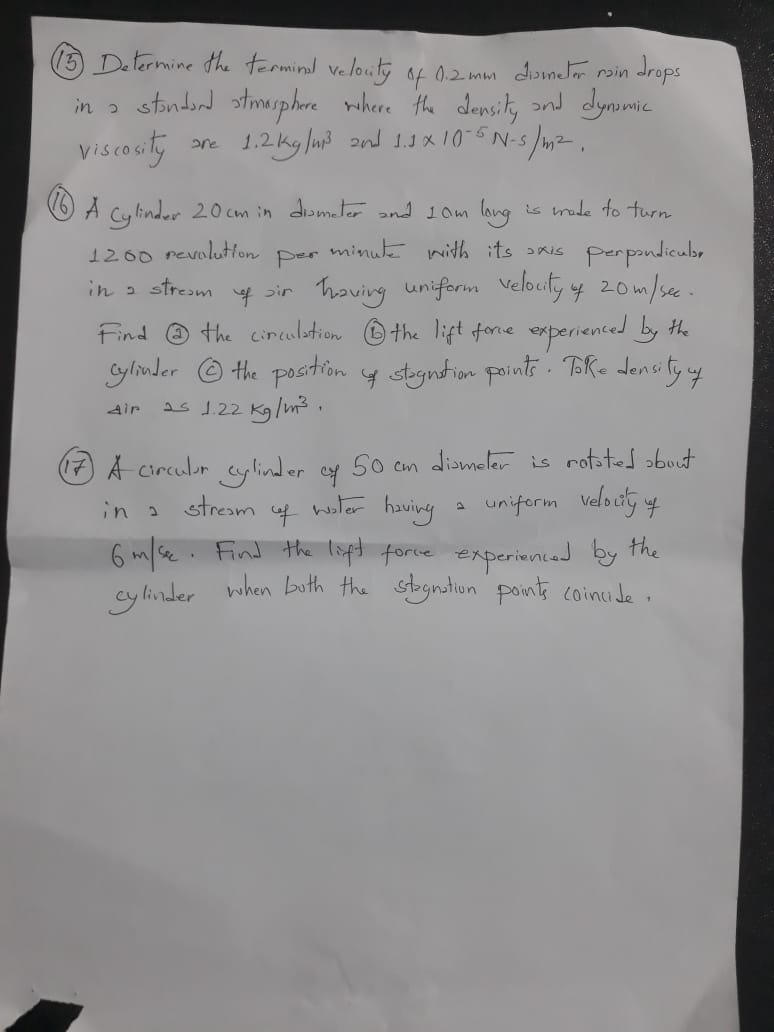 (15) Determine the terminal velocity of 0.2 mm diameter rain drops
in a standard atmosphere where the density and dynamic
viscosity are 1.2 kg/m³ and 1.1 x 10⁻⁵ N-s/m².
(16) A cylinder 20 cm in diameter and 10m long is made to turn
1200 revolution per minute with its axis perpendicular
in a stream of air having uniform velocity of 20 m/sec.
Find (a) the circulation (b) the lift force experienced by the
cylinder (c) the position of stagnation points. Take density of
air as 1.22 kg/m³.
(17) A circular cylinder of 50 cm diameter is rotated about
in a stream of water having a uniform velocity of
6 m/sec. Find the lift force experienced by the
cylinder when both the stagnation points coincide.